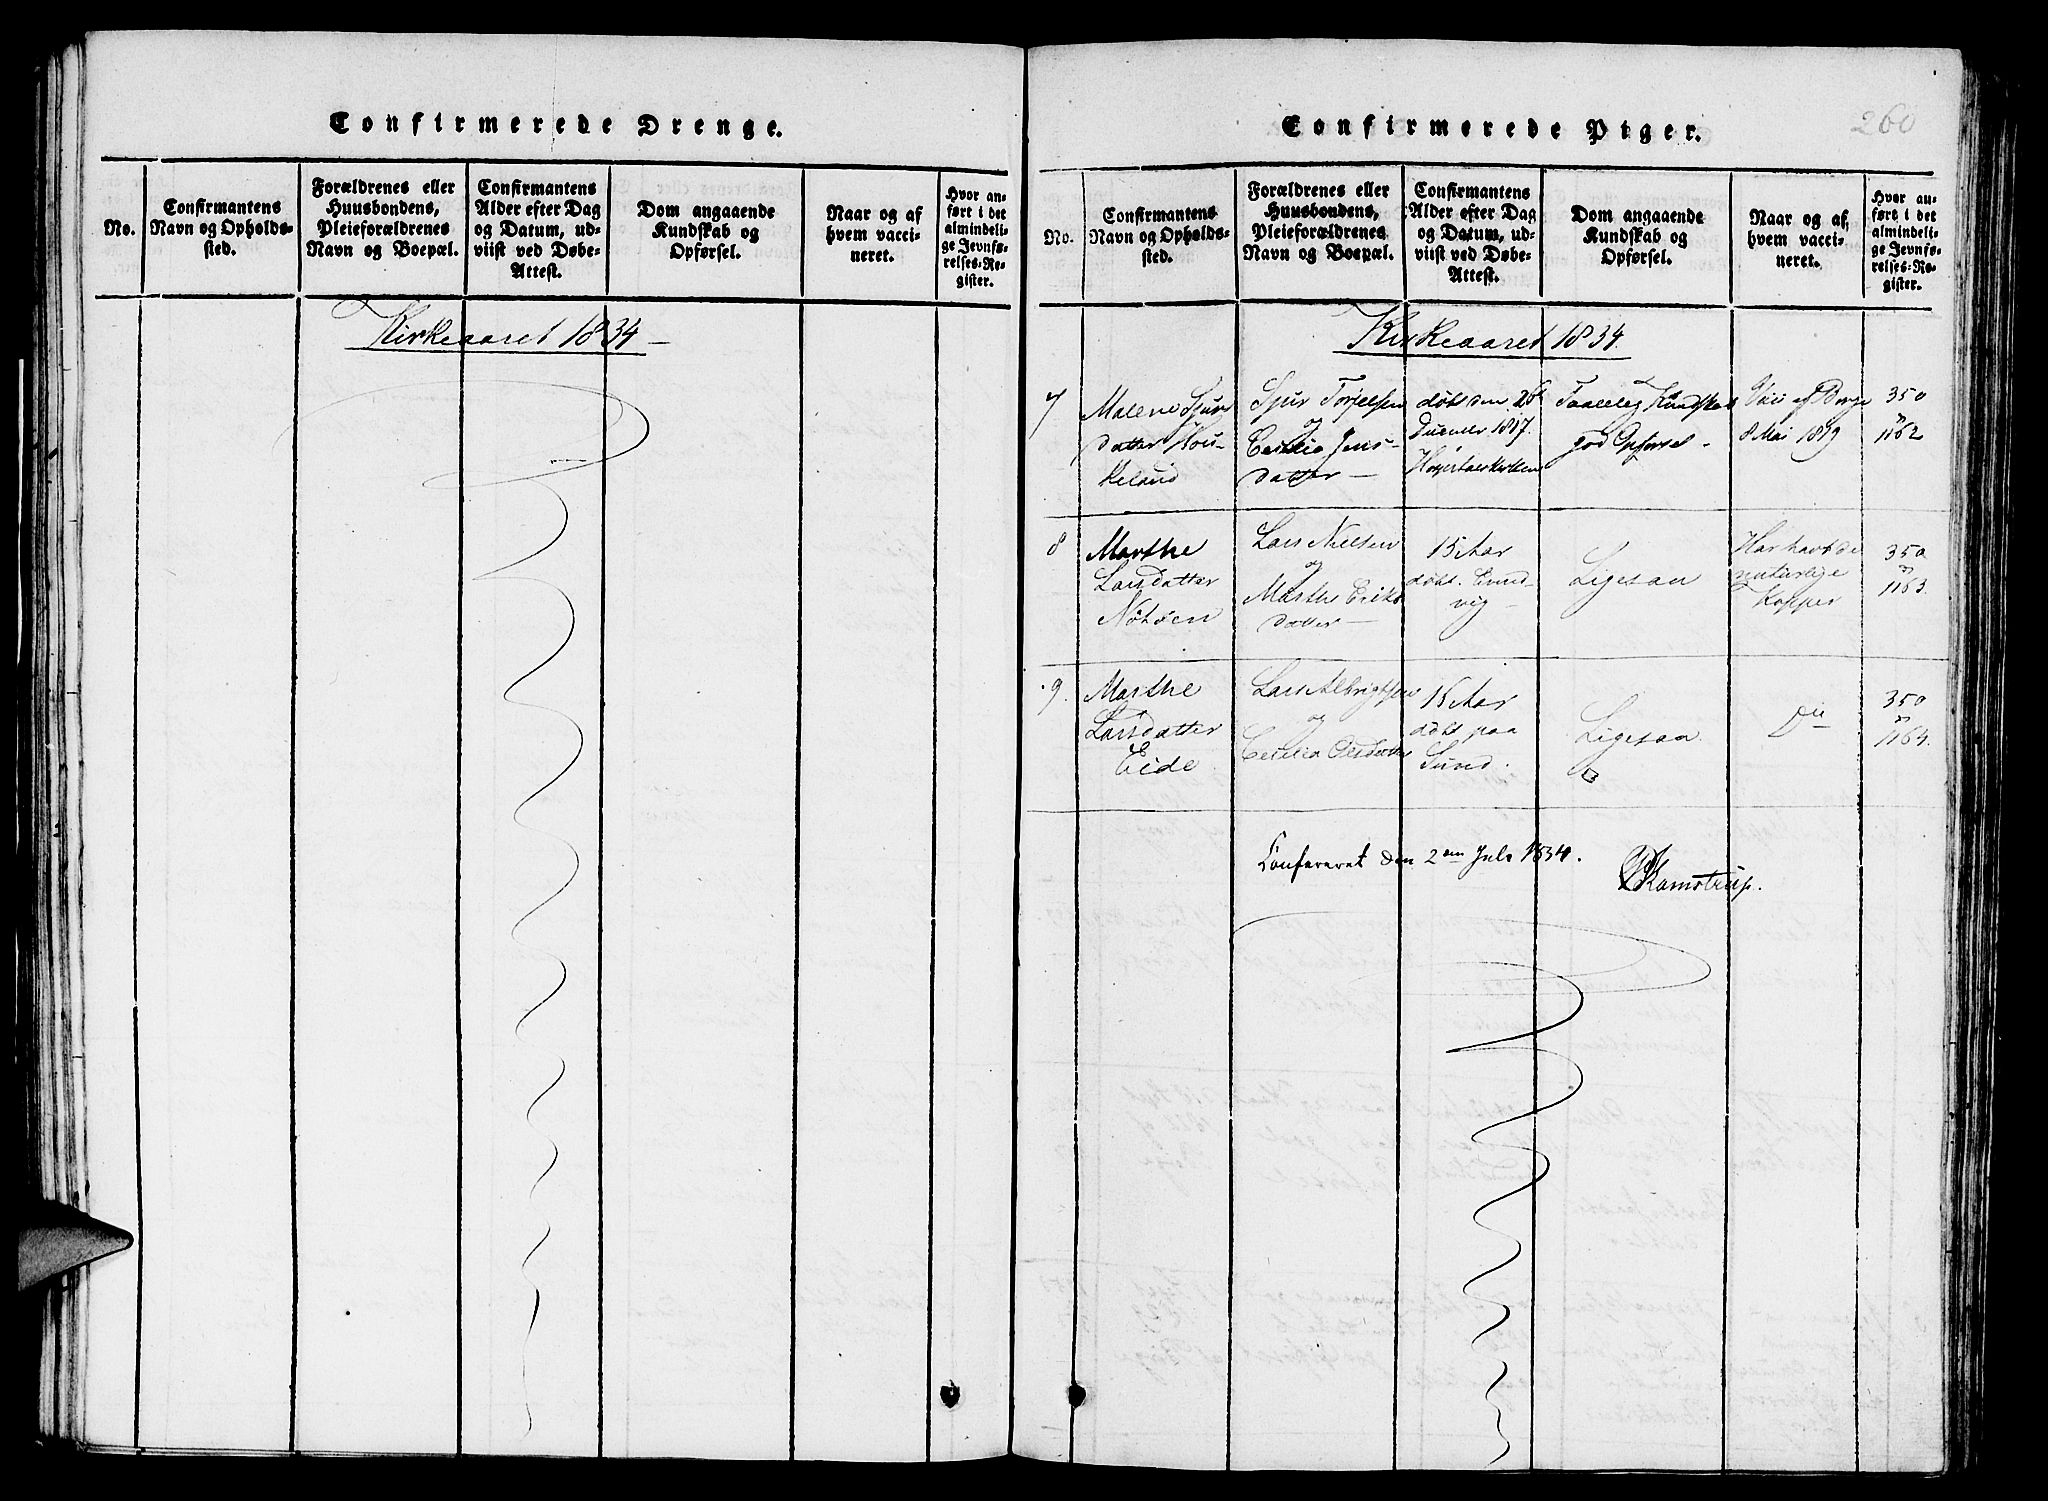 Confirmerede Drenge.
No.
Confirmantens
Navn og Opholds-
sted.
Forældrenes eller
Huusbondens,
Pleieforældrenes
Navn og Boepæl.
Confirmantens
Alder efter Dag
og Datum, ud-
viist ved Døbe-
Attest.
Dom angaaende
Kundskab og
Opførsel.
Naar og af
hvem vacci-
neret.
Hvor an-
ført i det
almindeli-
ge Jevnfø-
relses-Re-
gister.
Kirkeaaret 1834
Confirmerede Piger.
260
No.
Confirmantens
Navn og Opholds-
sted.
Forældrenes eller
Huusbondens,
Pleieforældrenes
Navn og Boepæl.
Confirmantens
Alder efter Dag
og Datum, ud-
viist ved Døbe-
Attest.
Dom angaaende
Kundskab og
Opførsel.
Naar og af
hvem vacci-
neret.
Hvor an-
ført i det
almindeli-
ge Jevnfø-
relses-Re-
gister.
Kirkeaaret 1834.
7
Malene Sjurs
datter Hou-
keland
Sjur Torjelsen
og
Cecilia Jens-
datter
døbt den 26
1817.
Taalelig Kundskab
god Opførsel.
af Borge
8 Mai 1819
350
n
1162
8
Marthe
Larsdatter
Nötsen
Lars Nielsen
og
Marthe Eriks
datter
15 Aar
døbt. Eund-
vig
Ligesaa
Har havt de
naturlige
Kopper
350
n
1163.
9.
Marthe
Larsdatter
Eide
Lars Albrigtsen
og
Cecilia Olsdatter
15 Aar
døbt paa
Sund.
Ligesaa
Do
350
n
1164.
Confereret den 2den Juli 1834.
Kamstrup.